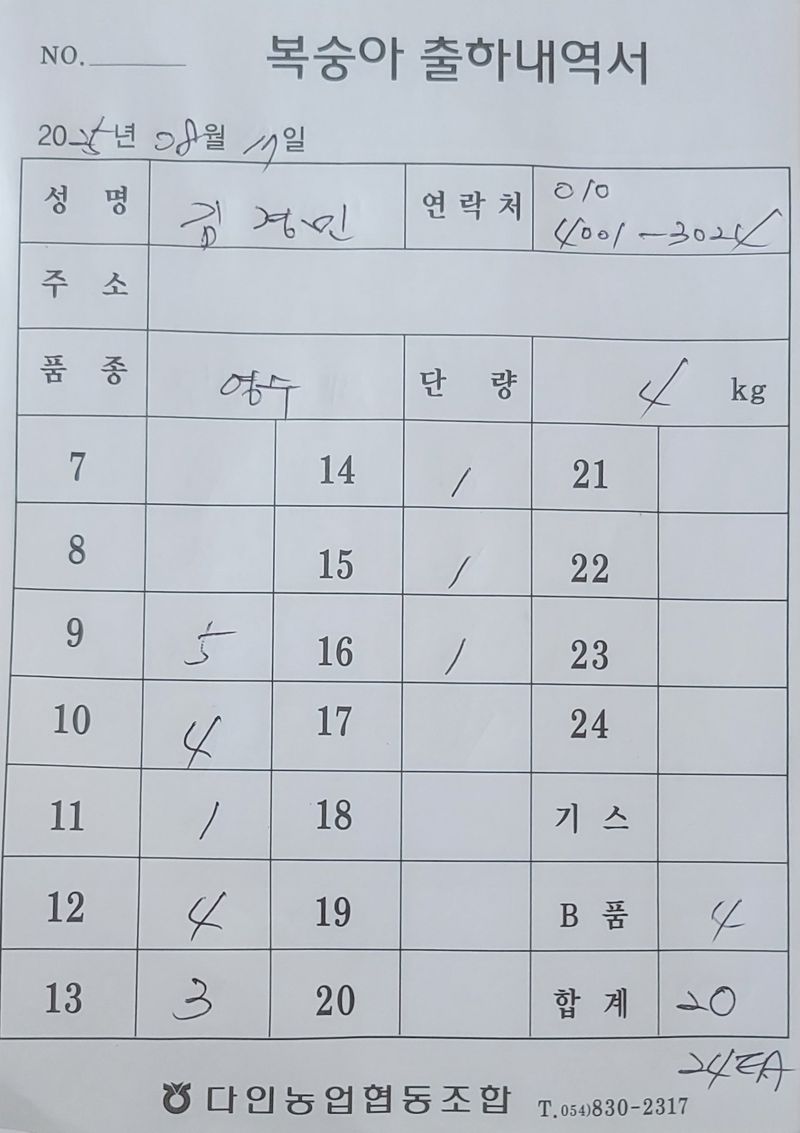 NO.
복숭아 출하내역서
2025년 08월 17일
성 명 김경민 연락처 010
4001-3024
주 소
품 종 영수 단 량 4 kg
7 14 1 21
8 15 1 22
9 5 16 1 23
10 4 17 24
11 1 18 기 스
12 4 19 B 품 4
13 3 20 합 계 20
24EA
다인농업협동조합 T.054)830-2317